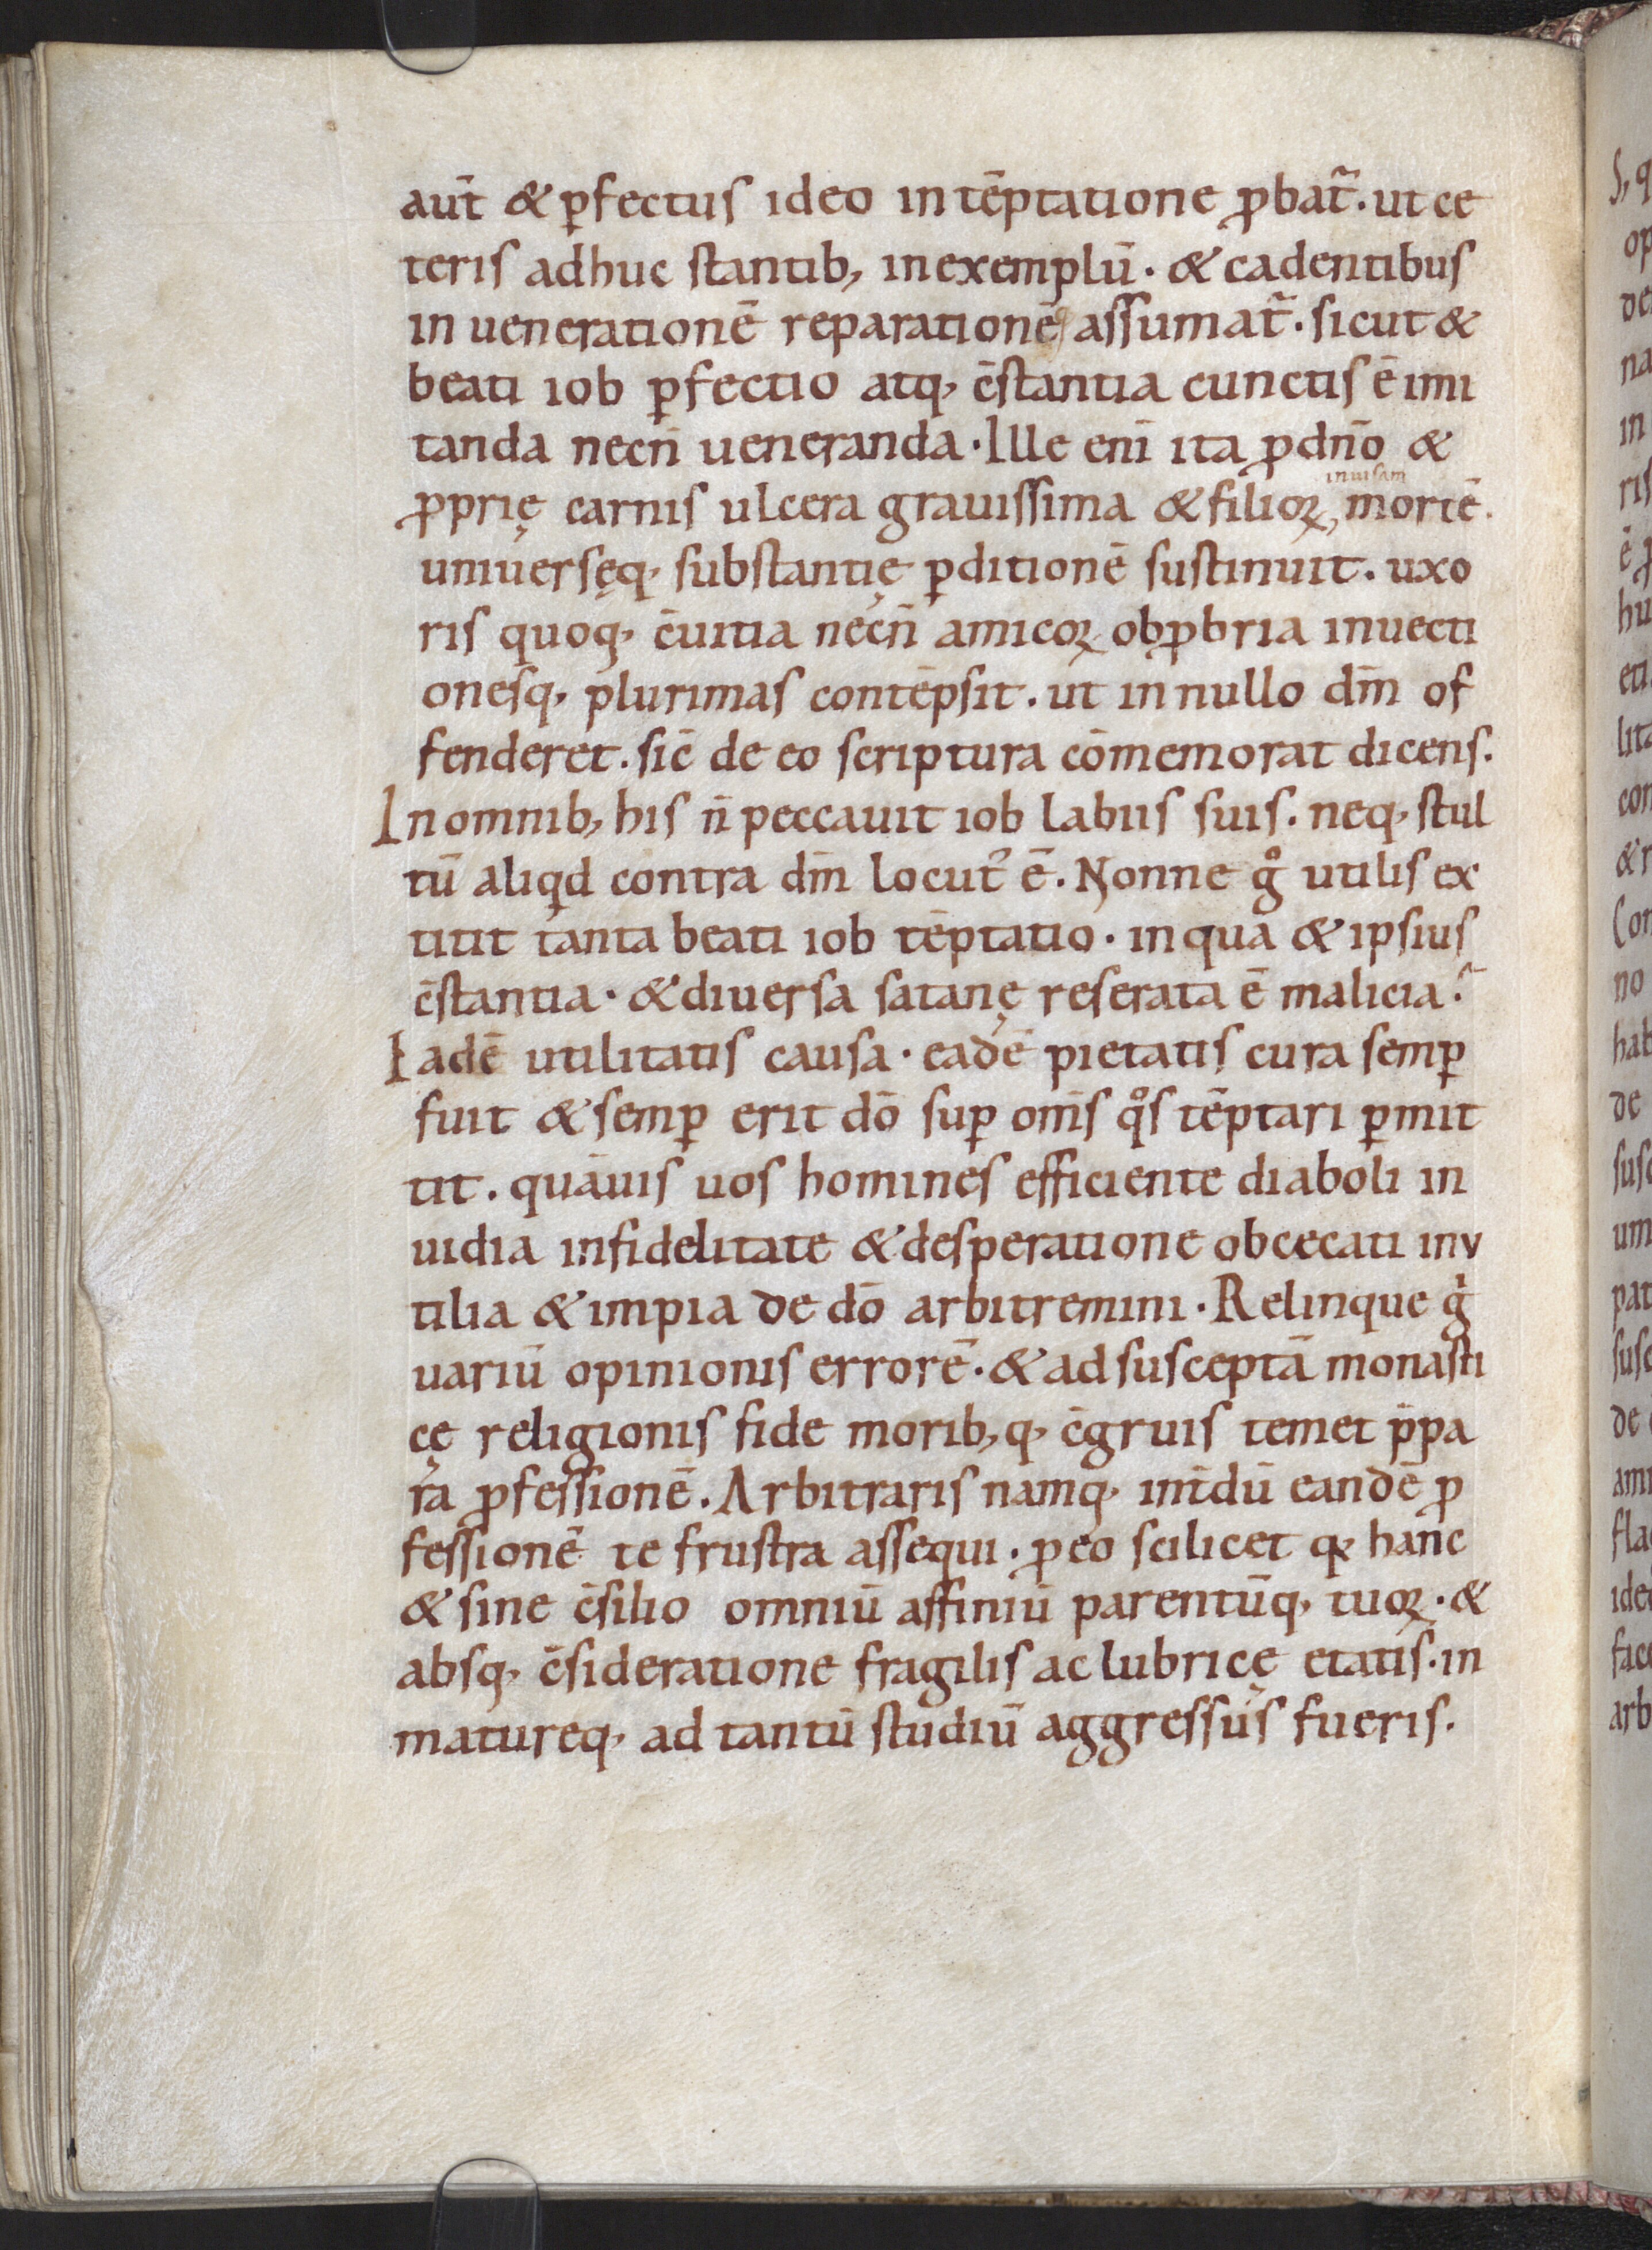 aut̄ & ꝑfectus ideo in tēptatione ꝓbat̃. ut ce
teris adhuc stantib; in exemplū. & cadentibus
in uenerationē reparationē assumat̃. sicut &
beati iob ꝑfectio atq; c̄stantia cunctis ē imi
tanda necn̄ ueneranda. Ille enī ita ꝓ dn̄o &
ꝓprię carnis ulcera grauissima & filioꝝ, inuisam mortē.
uniuersęq; substantię ꝑditionē sustinuit. uxo
ris quoq; c̄uitia necn̄ amicoꝝ obꝓbria inuecti
onesq; plurimas contēpsit. ut in nullo dm̄ of
fenderet. sic̄ de eo scriptura cōmemorat dicens.
In omnib; his n̄ peccauit iob labiis suis. neq; stul
tū aliqd contra dm̄ locut᾽ ē. Nonne gͦ utilis ex
titit tanta beati iob tēptatio. in qua & ipsius
c̄stantia. & diuersa satanę reserata ē malicia.̃
Eadē utilitatis causa. eadē pietatis cura semꝑ
fuit & semꝑ erit dō suꝑ om̄s qͦs tēptari ꝑmit
tit. quāuis uos homines efficiente diaboli in
uidia infidelitate & desperatione obcecati inv
tilia & impia de dō arbitremini. Relinque gͥ
uariū opinionis errorē. & ad susceptā monasti
cę religionis fide morib;q; c̄gruis temet p̄pa
ra ꝓfessionē. Arbitraris namq; int̄dū eandē ꝓ
fessionē te frustra assequi. ꝓ eo scilicet qꝫ hanc
& sine c̄silio omniū affiniū parentūq; tuoꝝ. &
absq; c̄sideratione fragilis ac lubricę etatis. in
matureq; ad tantū studiū aggressus fueris.